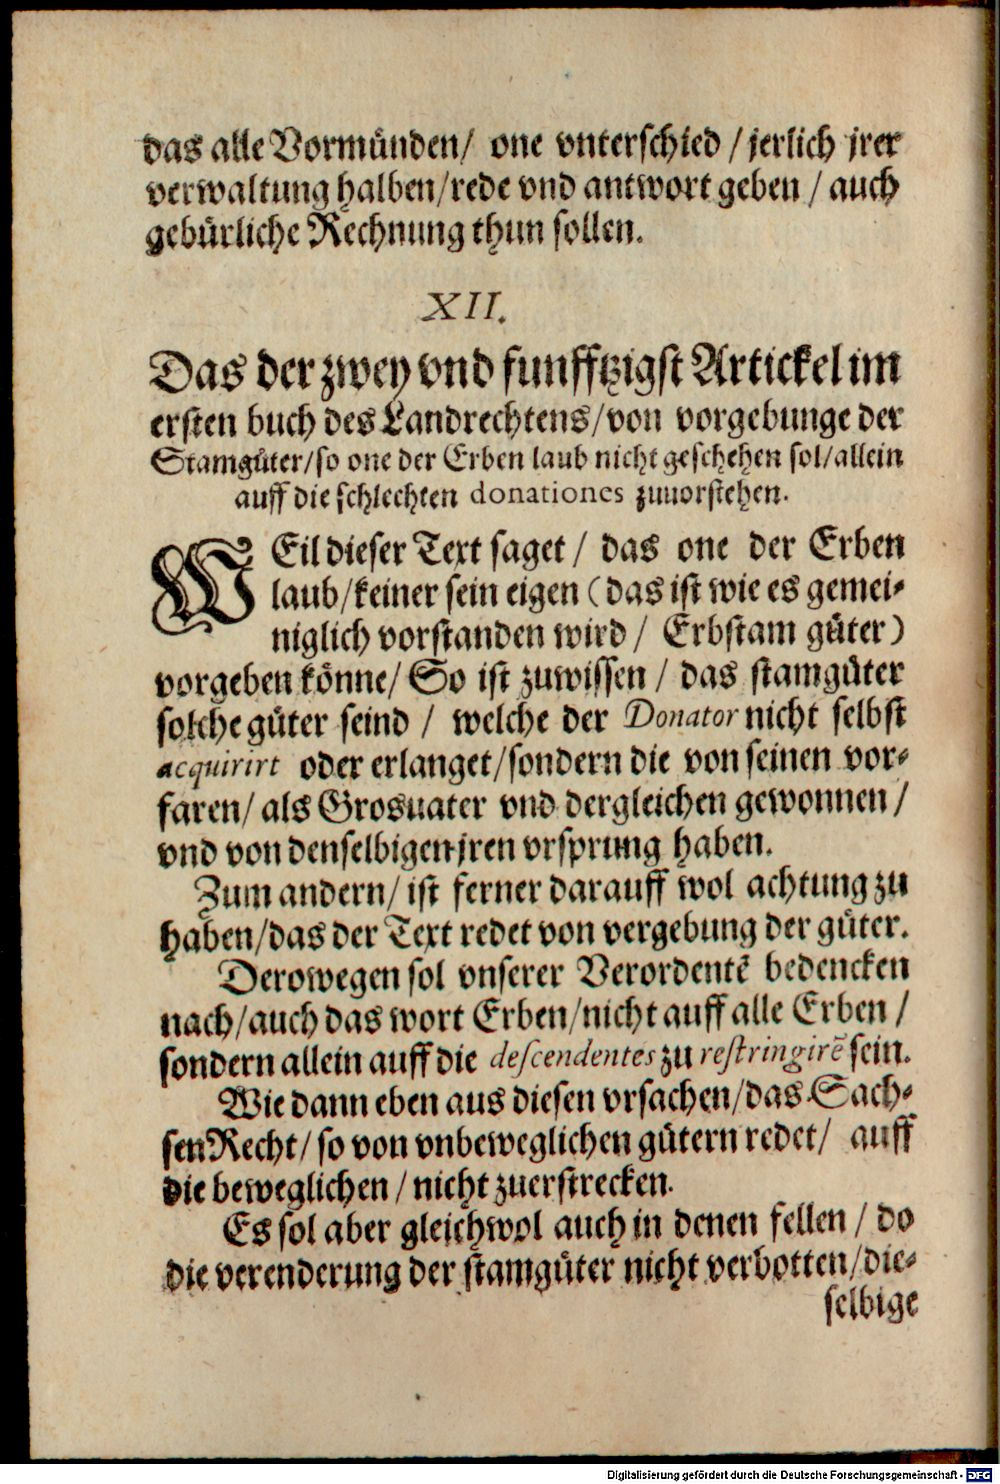 das alle Vormünden/ one vnterschied / jerlich jrer
verwaltung halben/rede vnd antwort geben / auch
gebürliche Rechnung thun sollen.
XII.
Das der zwey vnd funfftzigst Artickel im
ersten buch des Landrechtens/von vorgebunge der
Stamgüter/so one der Erben laub nicht geschehen sol/allein
auff die schlechten donationes zuuorstehen.
WEil dieser Text saget / das one der Erben
laub/keiner sein eigen (das ist wie es gemei-
niglich vorstanden wird / Erbstam güter)
vorgeben könne/ So ist zuwissen / das stamgüter
solche güter seind / welche der Donator nicht selbst
acquirirt oder erlanget/sondern die von seinen vor-
faren/ als Grosuater vnd dergleichen gewonnen /
vnd von denselbigen jren vrsprung haben.
Zum andern/ ist ferner darauff wol achtung zu
haben/das der Text redet von vergebung der güter.
Derowegen sol vnserer Verordentẽ bedencken
nach/auch das wort Erben/nicht auff alle Erben /
sondern allein auff die descendentes zu restringirẽ sein.
Wie dann eben aus diesen vrsachen/das Sach-
sen Recht/ so von vnbeweglichen gütern redet/ auff
die beweglichen / nicht zuerstrecken.
Es sol aber gleichwol auch in denen fellen / do
die verenderung der stamgüter nicht verbotten/die-
selbige
Digitalisierung gefördert durch die Deutsche Forschungsgemeinschaft - DFG